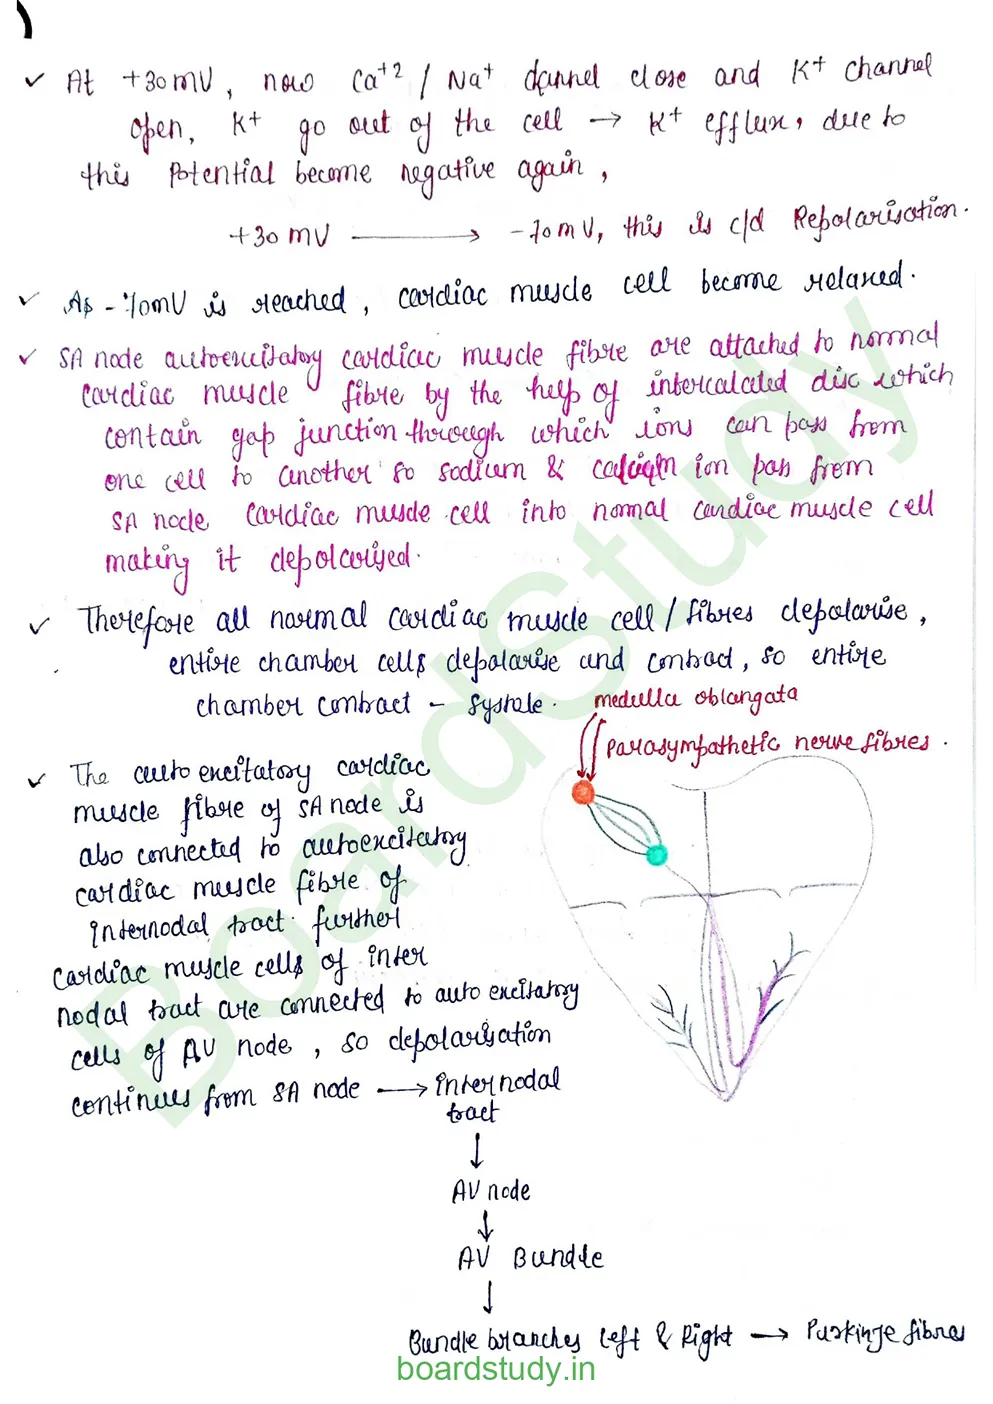 ✓ At +30mV, now Ca+2 / Na+ channel close and K+ channel
open, K+ go out of the cell → K+ efflux, due to
this Potential become negative again,
+30 mV ⟶ -70mV, this is c/d Repolarisation.
✓ As -70mV is reached, cardiac muscle cell become relaxed.
✓ SA node autoexcitatory cardiac muscle fibre are attached to normal
cardiac muscle fibre by the help of intercalated disc which
contain gap junction through which ions can pass from
one cell to another so sodium & calcium ion pass from
SA node cardiac muscle cell into normal cardiac muscle cell
making it depolarised.
✓ Therefore all normal cardiac muscle cell / fibres depolarise,
entire chamber cells depolarise and contract, so entire
chamber contract - systole.
medulla oblangata
Parasympathetic nerve fibres.
✓ The auto excitatory cardiac
muscle fibre of SA node is
also connected to autoexcitatory
cardiac muscle fibre of
internodal tract. further
cardiac muscle cells of inter
nodal tract are connected to auto excitatory
cells of AV node, so depolarisation
continues from SA node ⟶ internodal
tract
↓
AV node
↓
AV Bundle
↓
Bundle branches left & Right → Purkinje fibres
boardstudy.in
BoardStudy